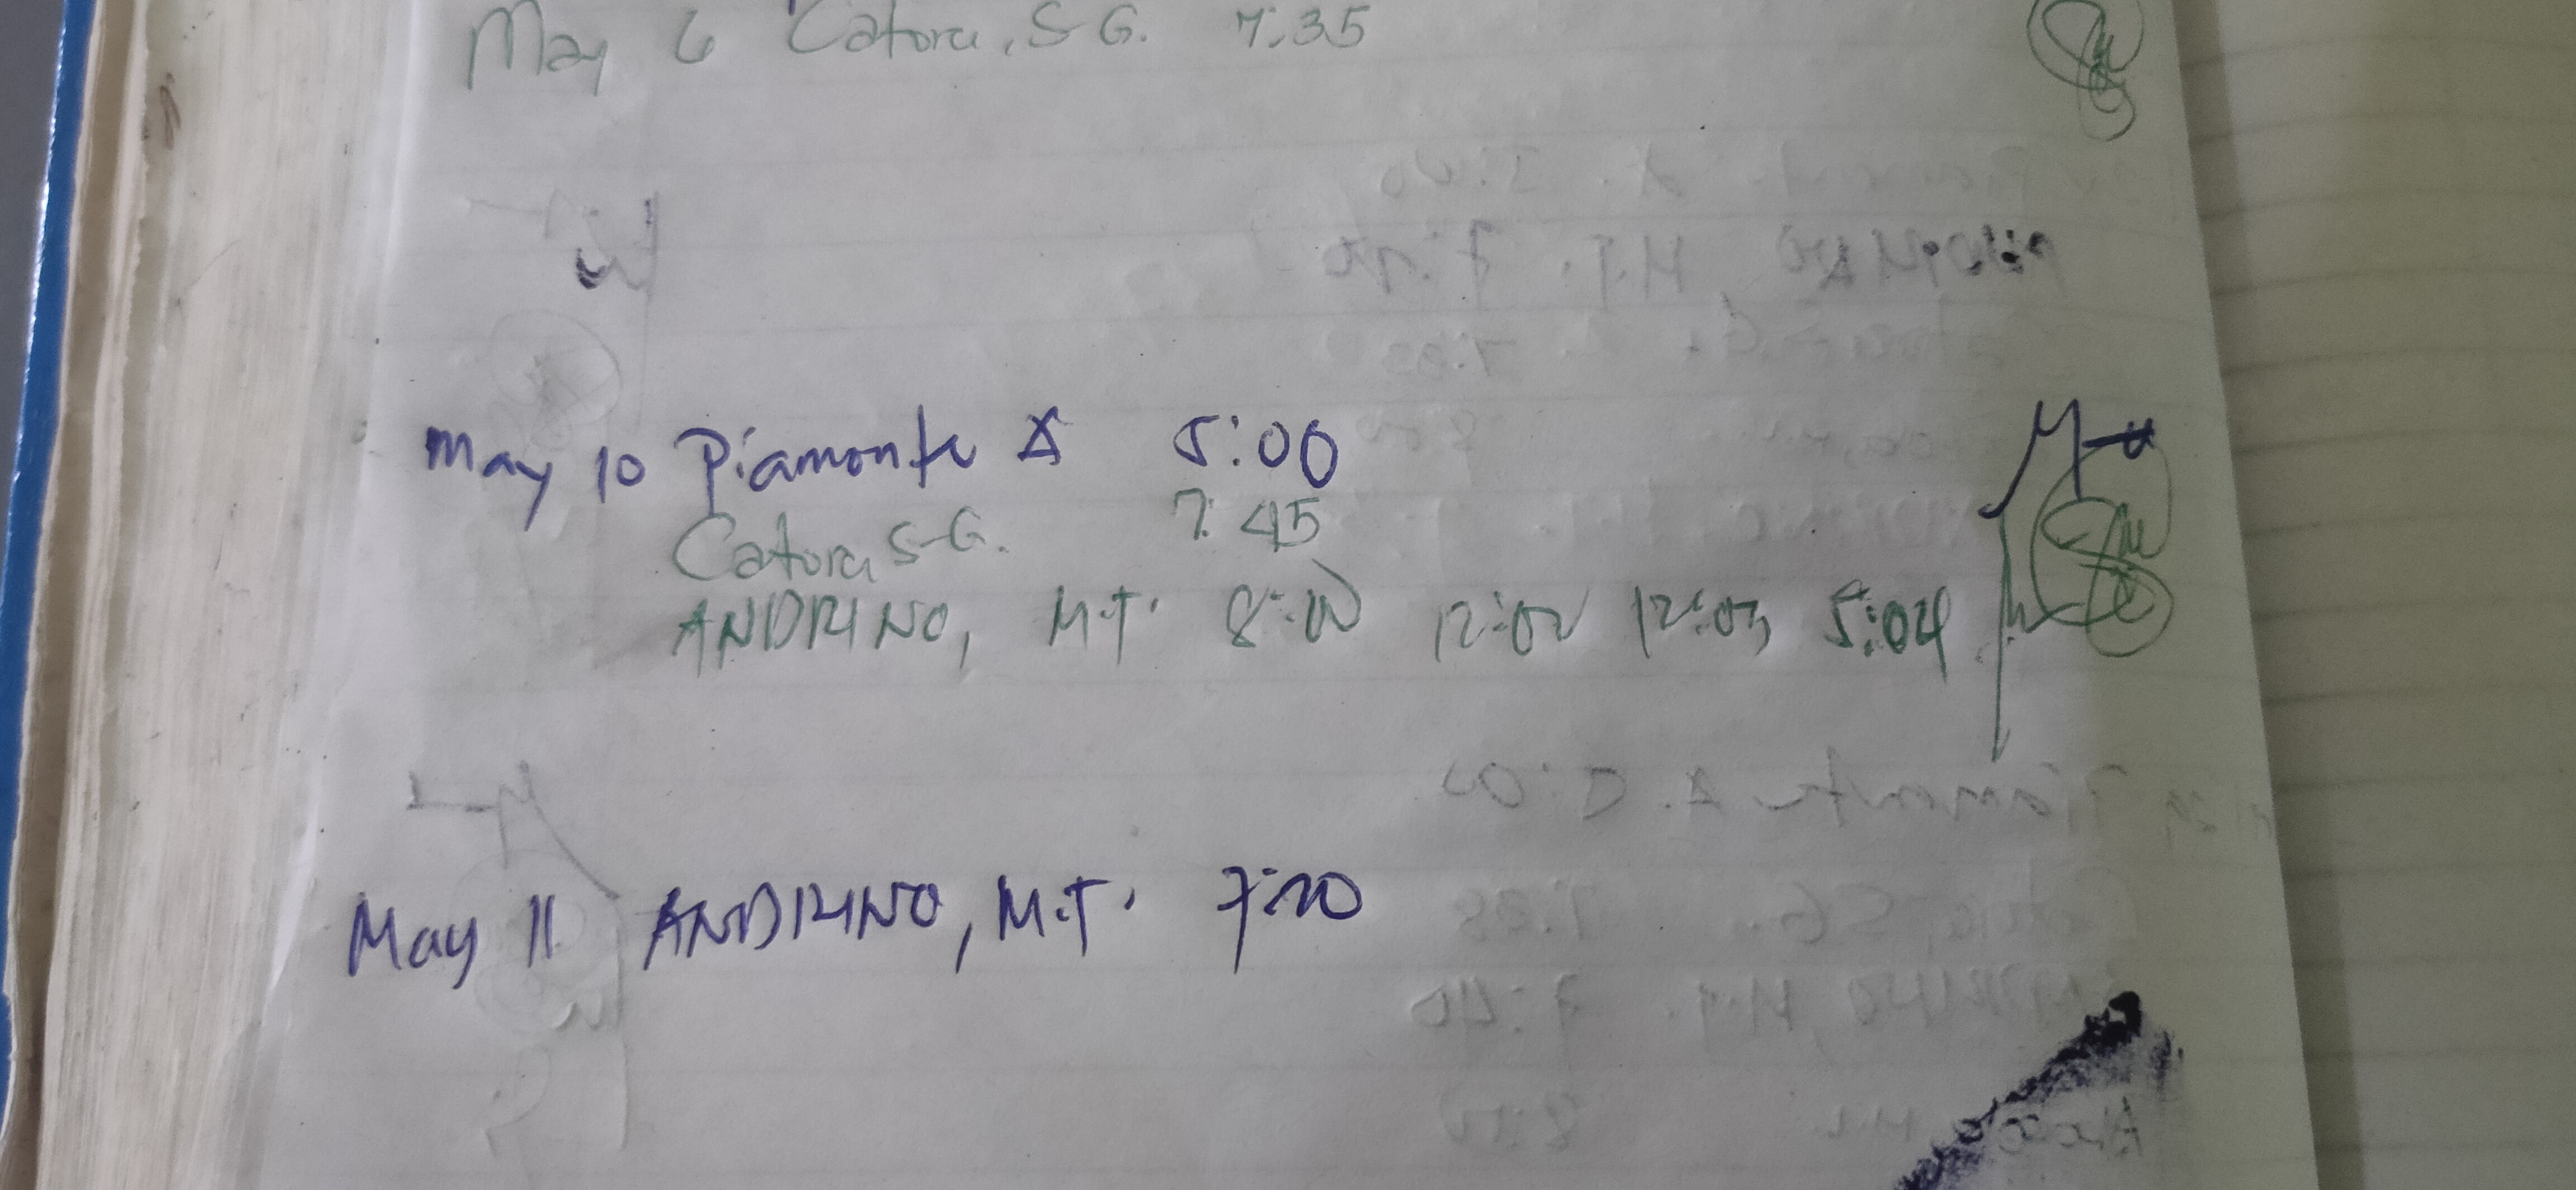 May 6 Catora, S G. 7:35
May 10 Piamonte A 5:00
Catora, S-G. 7:45
ANDRINO, M.T. 8:00 12:02 12:03 5:04
May 11 ANDRINO, M.T. 7:20